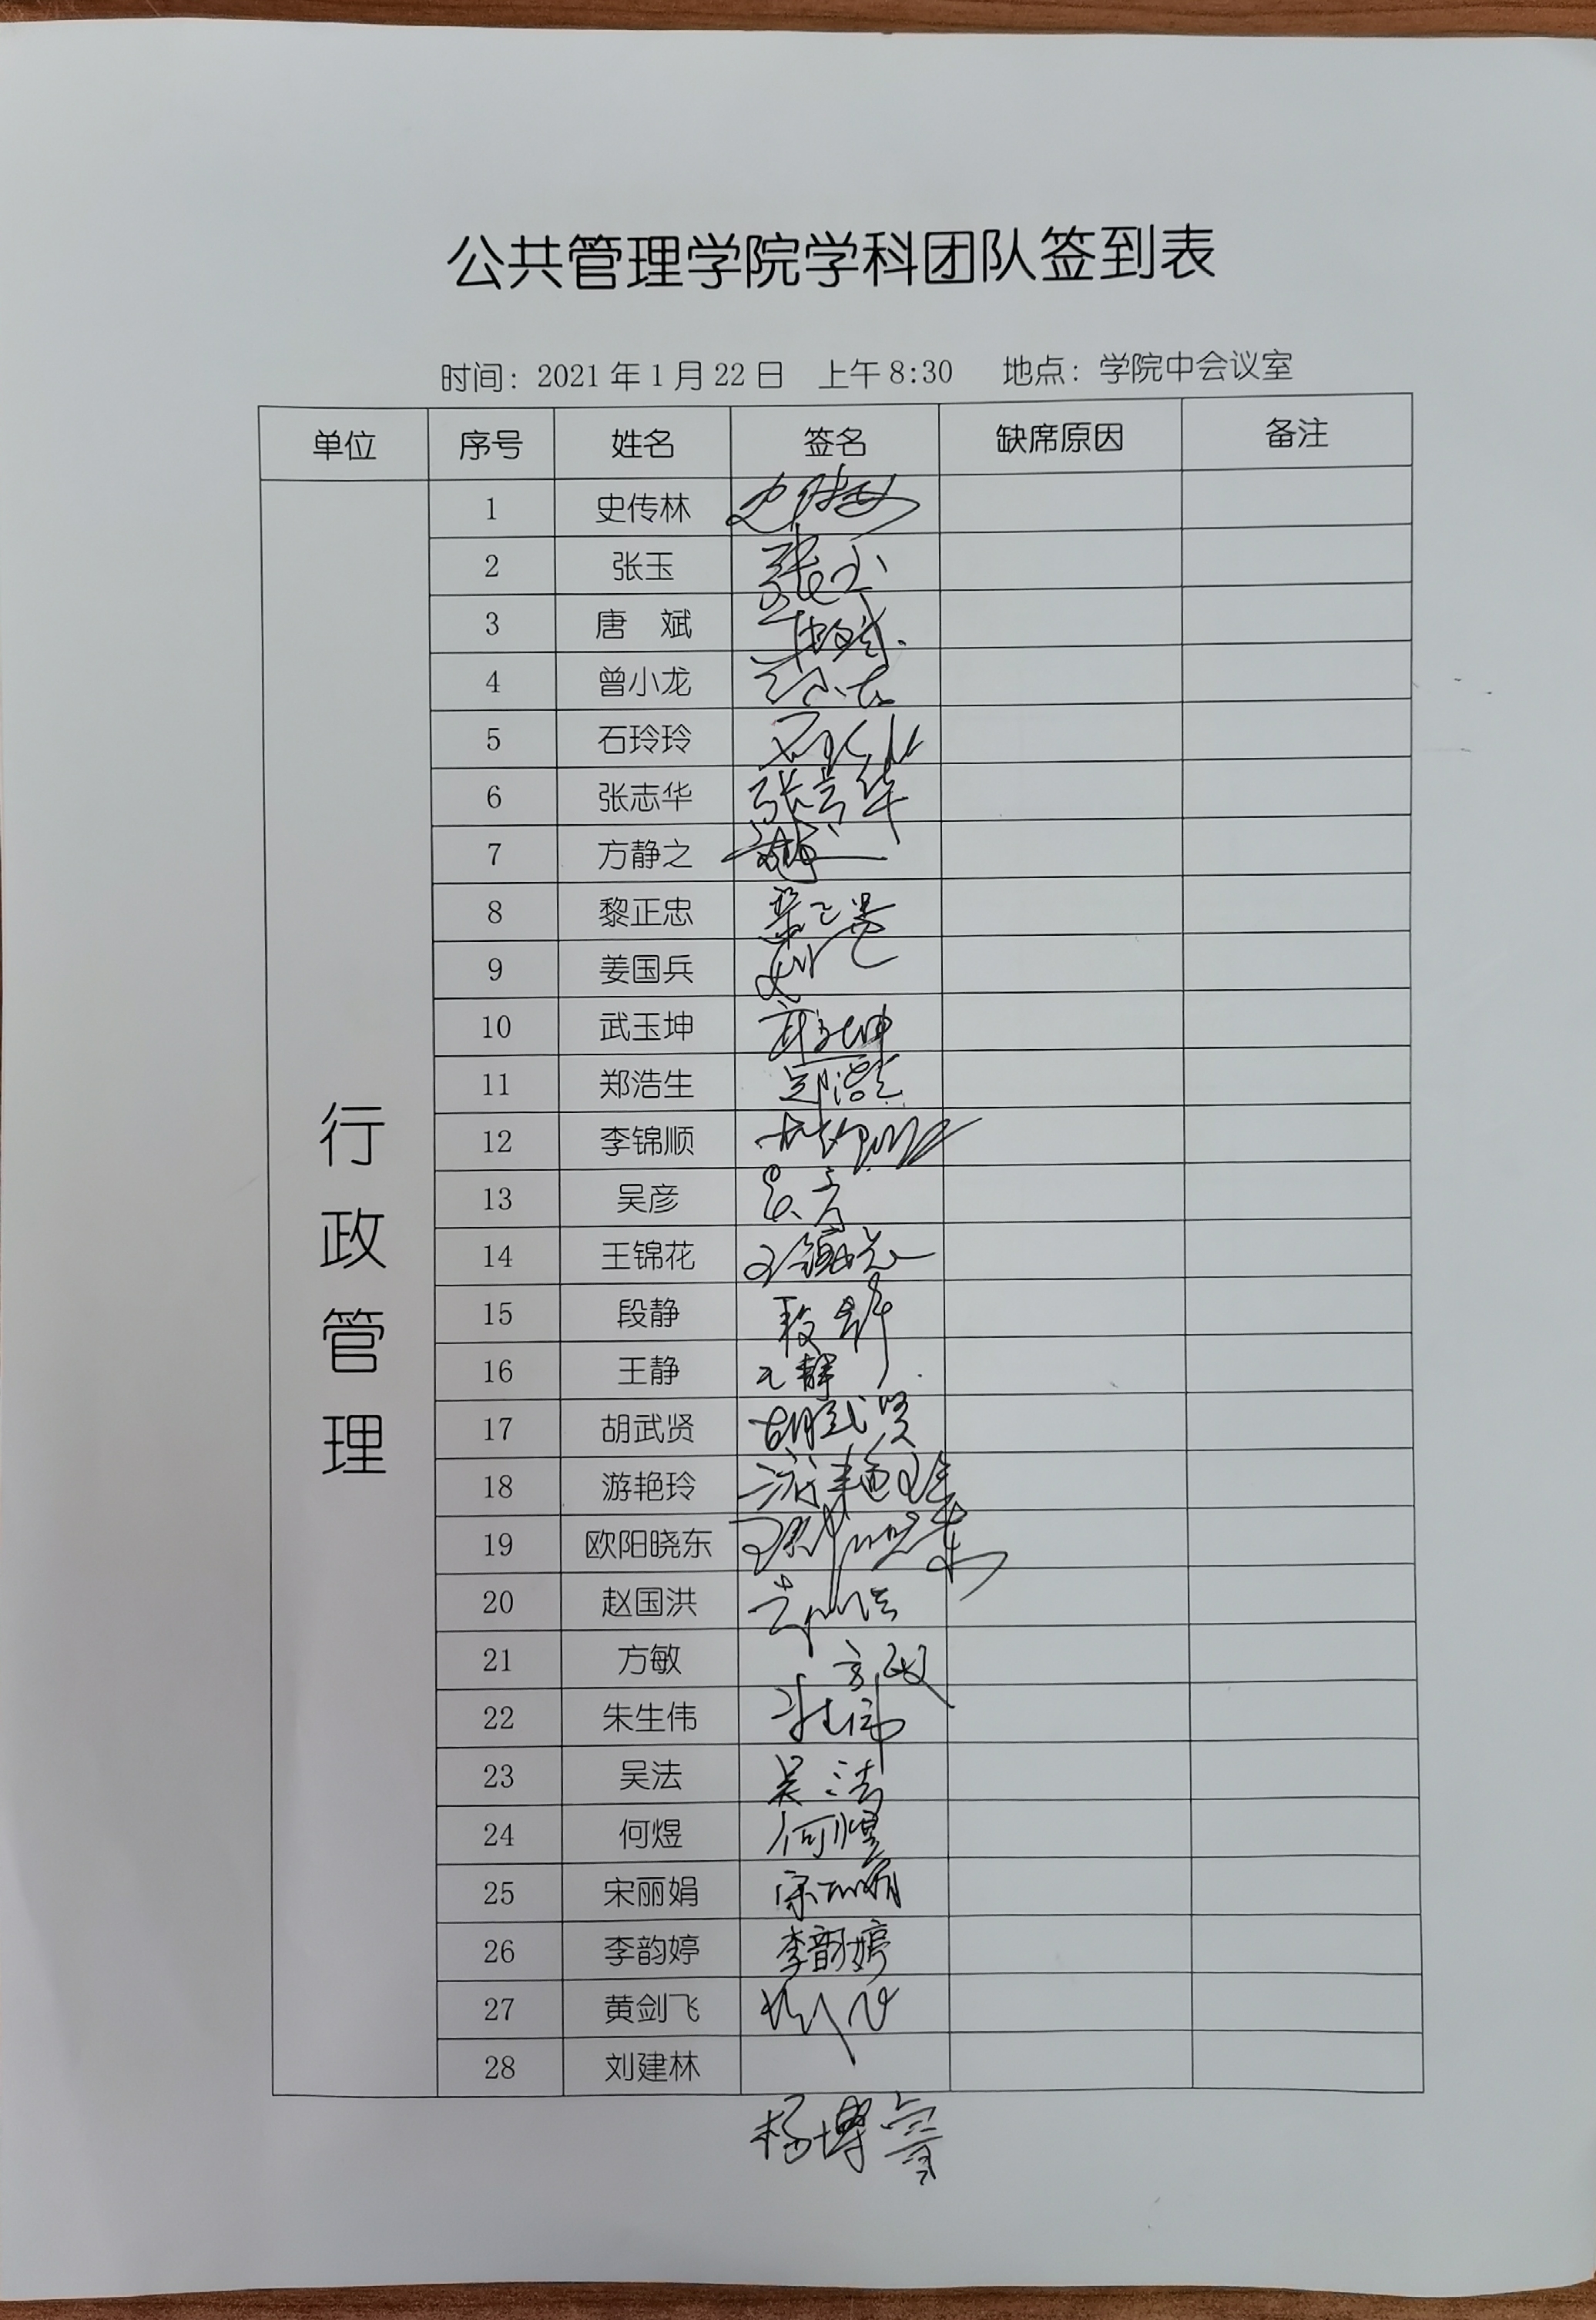 公共管理学院学科团队签到表
时间：2021年1月22日 上午8:30 地点：学院中会议室
单位 序号 姓名 签名 缺席原因 备注
行政管理
1 史传林 史传林
2 张玉 张玉
3 唐 斌 唐斌
4 曾小龙 曾小龙
5 石玲玲 石玲玲
6 张志华 张志华
7 方静之 方静之
8 黎正忠 黎正忠
9 姜国兵
10 武玉坤 武玉坤
11 郑浩生 郑浩生
12 李锦顺 李锦顺
13 吴彦 吴彦
14 王锦花 王锦花
15 段静 段静
16 王静 王静
17 胡武贤 胡武贤
18 游艳玲 游艳玲
19 欧阳晓东 欧阳晓东
20 赵国洪 赵国洪
21 方敏 方敏
22 朱生伟 朱生伟
23 吴法 吴法
24 何煜 何煜
25 宋丽娟 宋丽娟
26 李韵婷 李韵婷
27 黄剑飞
28 刘建林
杨博